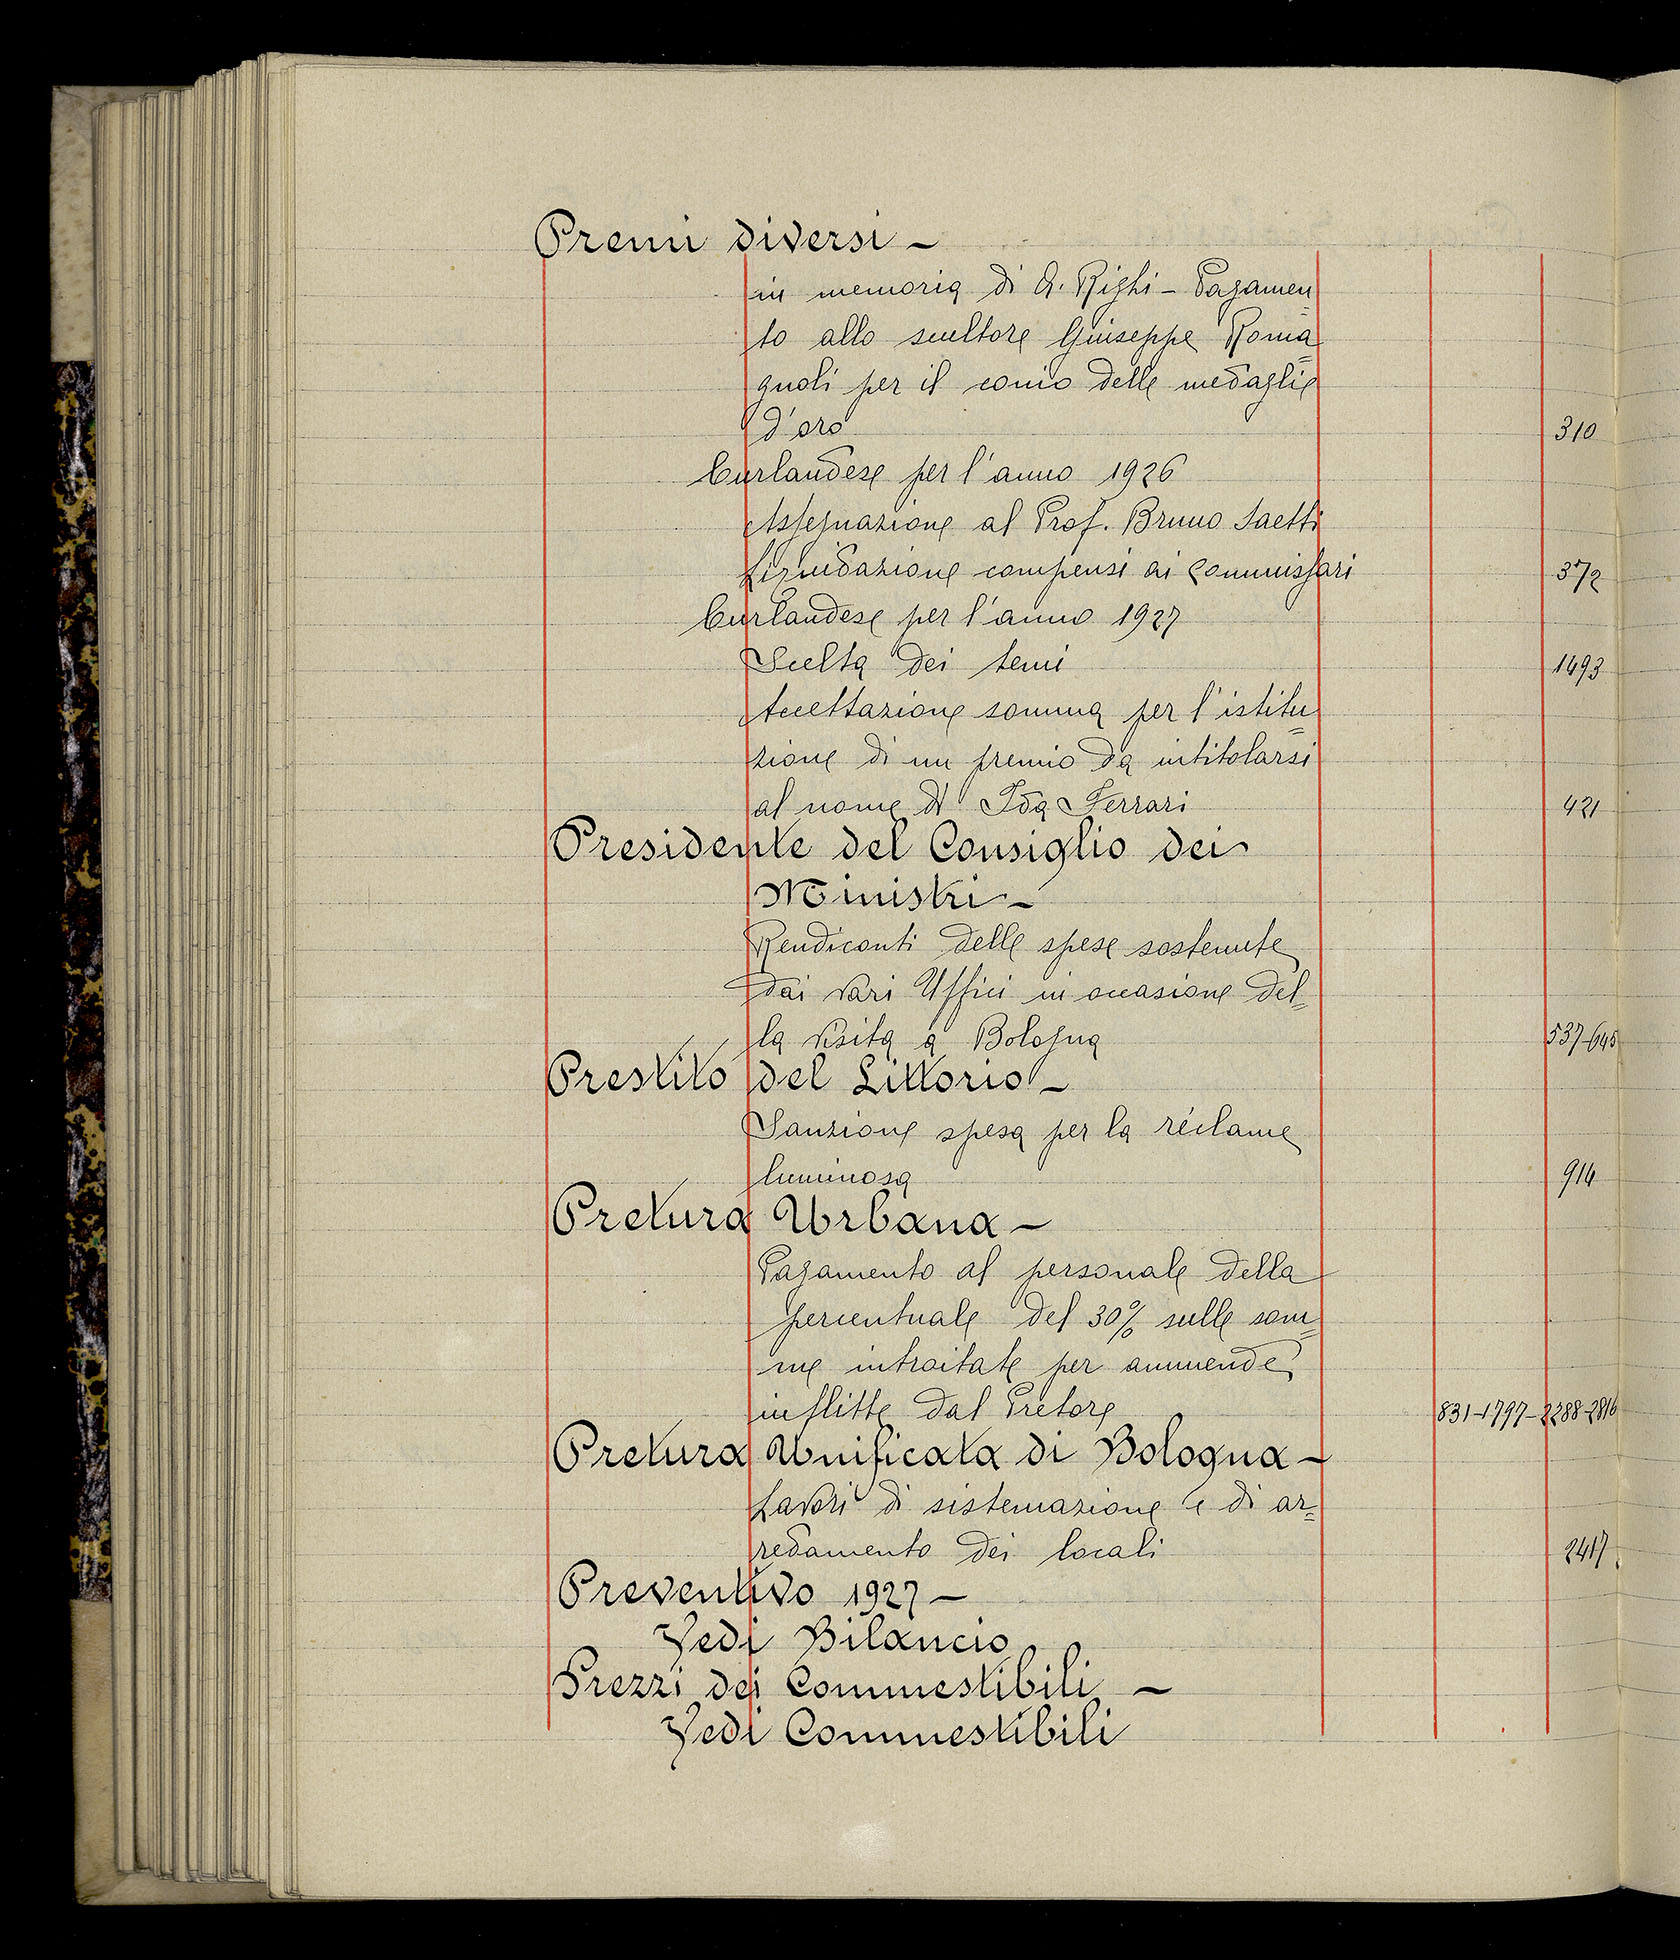 Premi diversi -
in memoria di A. Righi - Pagamen=
to allo scultore Giuseppe Roma=
gnoli per il conio delle medaglie
d'oro 310
Curlandese per l'anno 1926
Assegnazione al Prof. Bruno Saetti
Liquidazione compensi ai Commissari 372
Curlandese per l'anno 1927
Scelta dei temi 1493
Accettazione somma per l'istitu=
zione di un premio da intitolarsi
al nome di Ida Ferrari 421
Presidente del Consiglio dei
Ministri -
Rendiconti delle spese sostenute
dai vari Uffici in occasione del=
la visita a Bologna 537-645
Prestito del Littorio -
Sanzione spesa per la réclame
luminosa 914
Pretura Urbana -
Pagamento al personale della
percentuale del 30% sulle som=
me introitate per ammende
inflitte dal Pretore 831-1797-2288-2816
Pretura Unificata di Bologna -
Lavori di sistemazione e di ar=
redamento dei locali 2417
Preventivo 1927 -
Vedi Bilancio
Prezzi dei Commestibili -
Vedi Commestibili